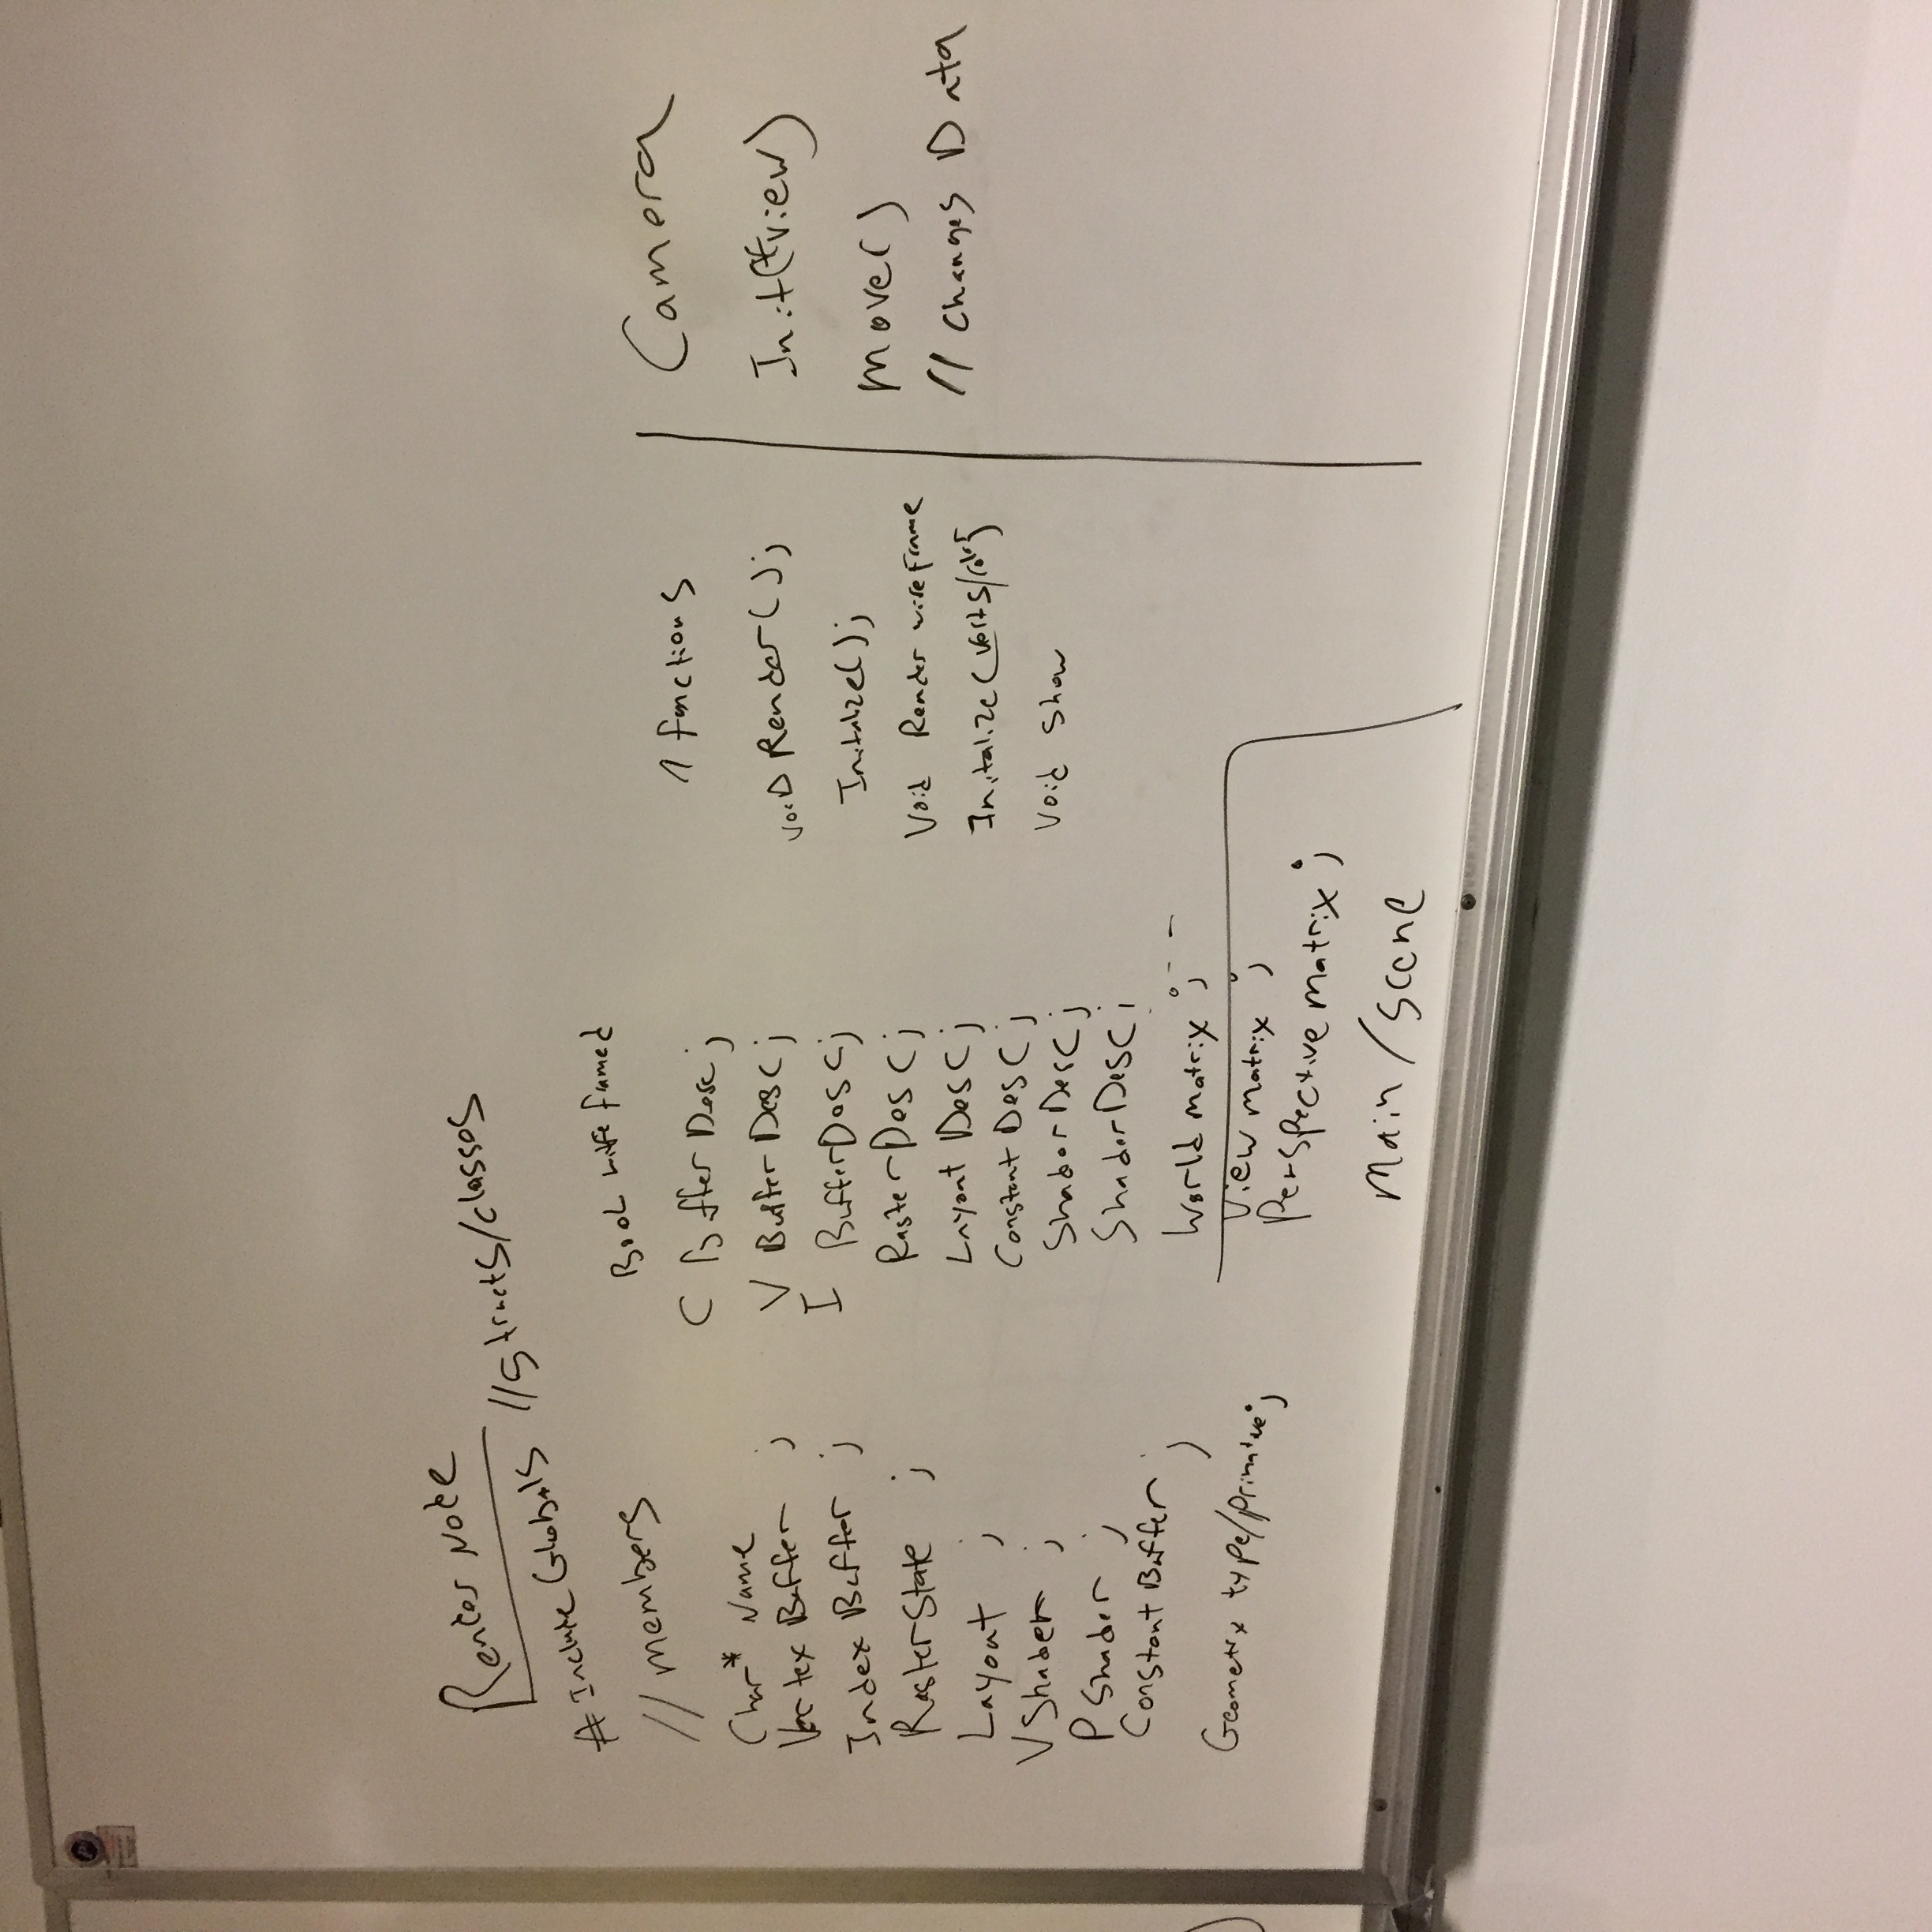 Render Node
#Include Globals //Structs/classes
//members
Char* Name
Vertex Buffer ;
Index Buffer ;
RasterState ;
Layout ;
VShader ;
P Shader ;
Constant Buffer ;
Geometrix type/primative;
Bool wire framed
C Buffer Desc;
V Buffer Desc;
I BufferDesc;
RasterDesc;
Layout Desc;
Constant Desc;
ShaderDesc;
ShaderDesc;
World matrix ;
View matrix ;
Perspective matrix ;
main/scene
functions
void Render();
Initalize();
Void Render wireframe
Initalize(verts/
Void Show
Camera
Init(*view)
move()
// Changes Data